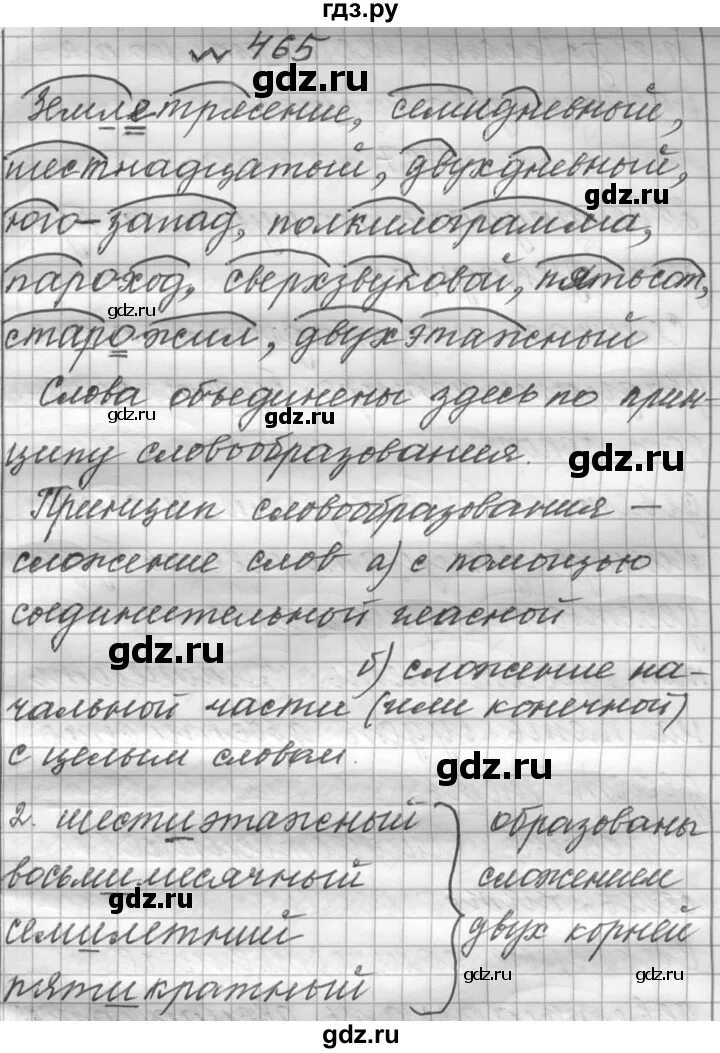 гдз.ру
№ 465
gdz.ru
Землетрясение, семидневный,
шестнадцатый, двухдневный,
gdz.ru
юго-запад, полкилограмма,
пароход, сверхзвуковой, пятьсот,
gdz.ru
старожил, двухэтажный
Слова объединены здесь по прин-
gdz.ru gdz.ru
ципу словообразования.
gdz.ru
Принцип словообразования —
сложение слов а) с помощью
соединительной гласной
gdz.ru
б) сложение на-
чальной части (или конечной)
с целым словом.
gdz.ru
2. шестиэтажный образованы
восьмимесячный сложением
gdz.ru
семилетний двух корней
gdz.ru gdz.ru
пятикратный
gdz.ru